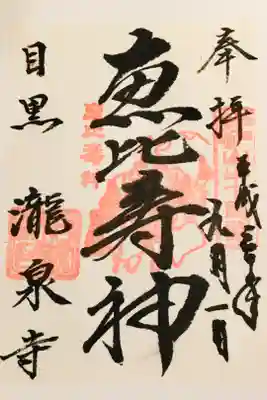 奉拝
平成三十年
九月一日
恵比寿神
目黒 瀧泉寺